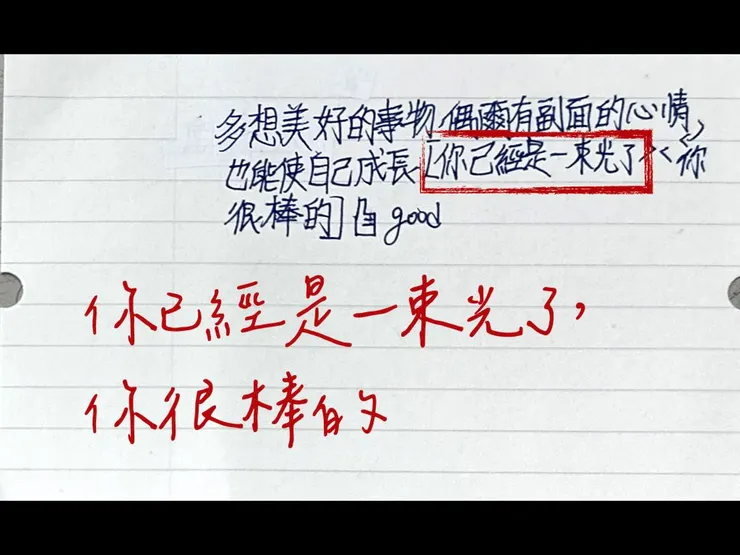 多想美好的事物,偶爾有副面的心情,
也能使自己成長.[你已經是一束光了<<你
很棒的]自good
你已經是一束光了,
你很棒的